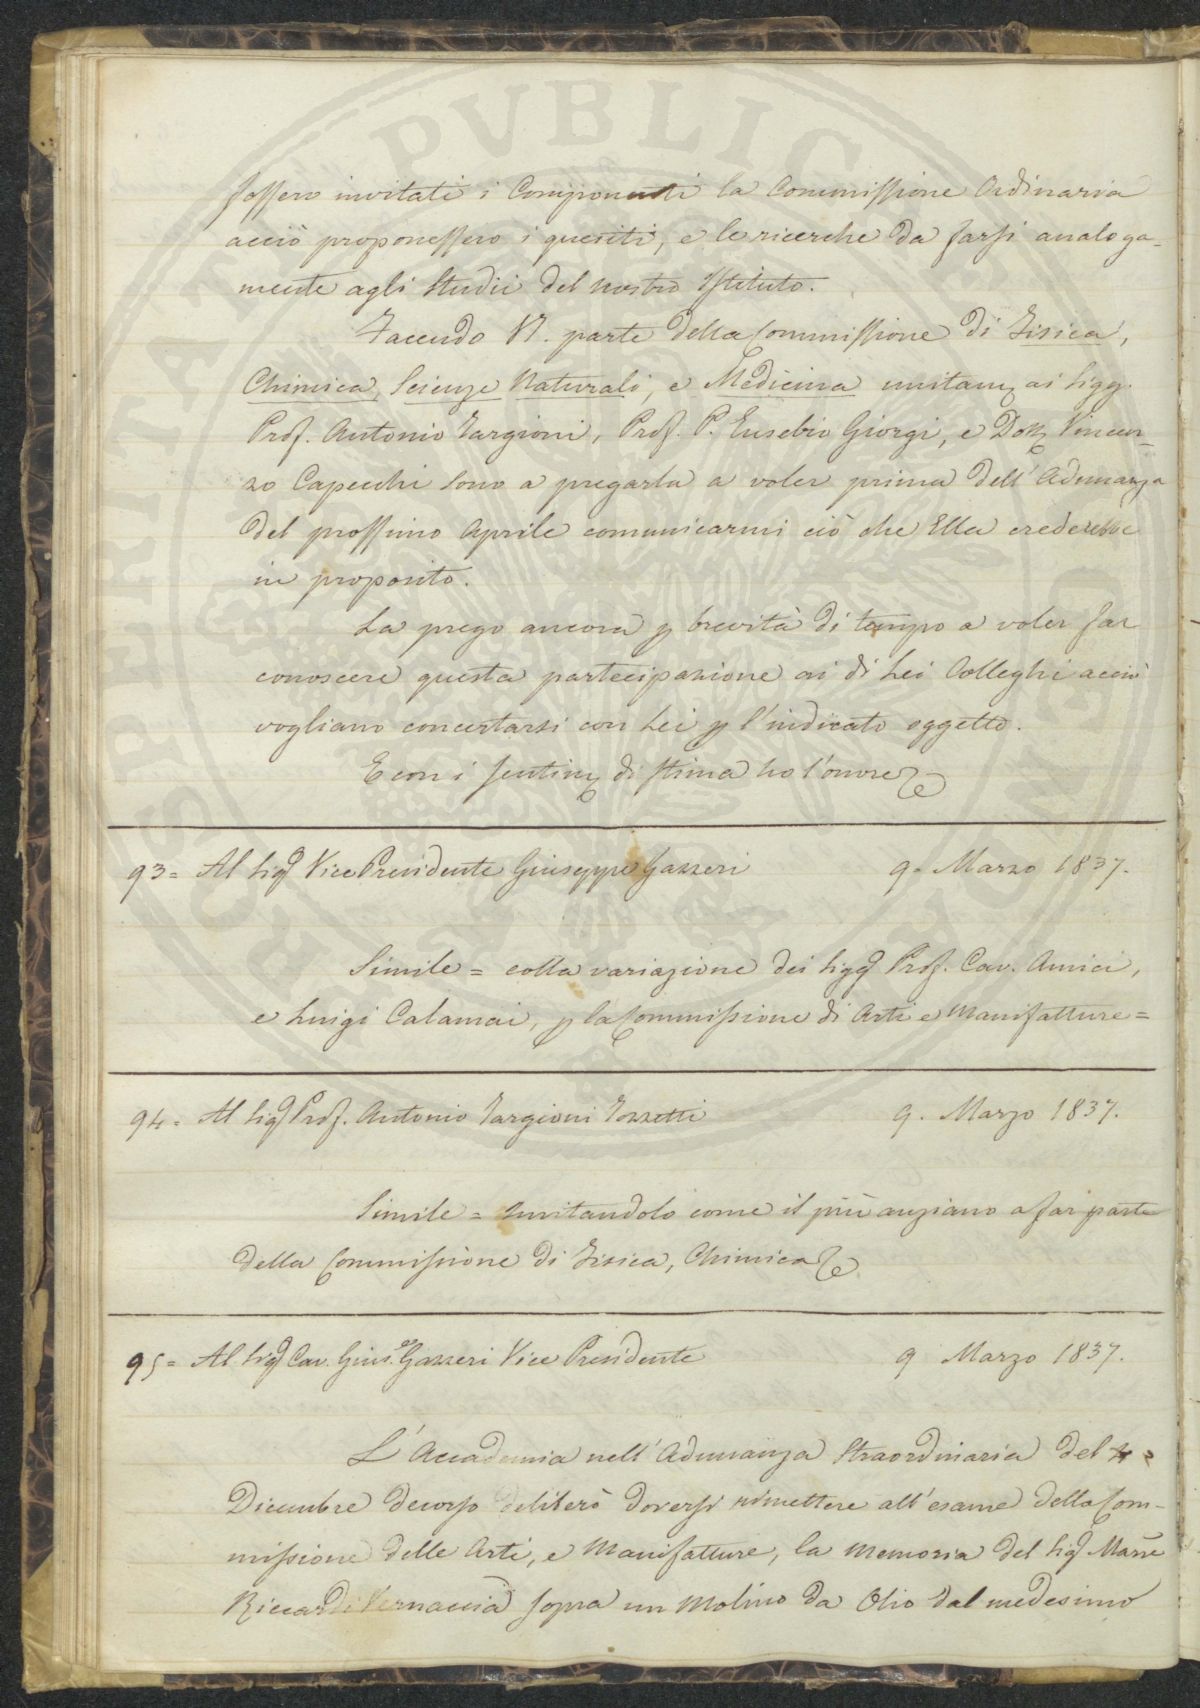 fossero invitati i Componenti la Commissione Ordinaria
acciò proponessero i quesiti, e le ricerche da farsi analoga-
mente agli Studii del nostro Istituto.
Facendo VS. parte della Commissione di Fisica,
Chimica, Scienze Naturali, e Medicina unitam. ai Sigg.
Prof. Antonio Targioni, Prof. P. Eusebio Giorgi, e Dott. Vincen-
zo Capecchi sono a pregarla a voler prima dell' Adunanza
del prossimo Aprile comunicarmi ciò che Ella crederebbe
in proposito.
La prego ancora p brevità di tempo a voler far
conoscere questa partecipazione ai di Lei Colleghi acciò
vogliano concertarsi con Lei p l'indicato oggetto.
E con i sentim. di stima ho l'onore &c
93= Al Sig. Vice Presidente Giuseppe Gazzeri 9. Marzo 1837.
Simile = colla variazione dei Sigg. Prof. Cav. Amici,
e Luigi Calamai, p la Commissione di Arti e Manifatture=
94= Al Sig. Prof. Antonio Targioni Tozzetti 9. Marzo 1837.
Simile = invitandolo come il più anziano a far parte
della Commissione di Fisica, Chimica &c
95= Al Sig. Cav. Gius.e Gazzeri Vice Presidente 9 Marzo 1837.
L' Accademia nell' Adunanza Straordinaria del
Dicembre decorso deliberò doversi rimettere all' esame della Com-
missione delle Arti, e Manifatture, la Memoria del Sig. March.
Riccardi Vernaccia sopra un Molino da Olio dal medesimo